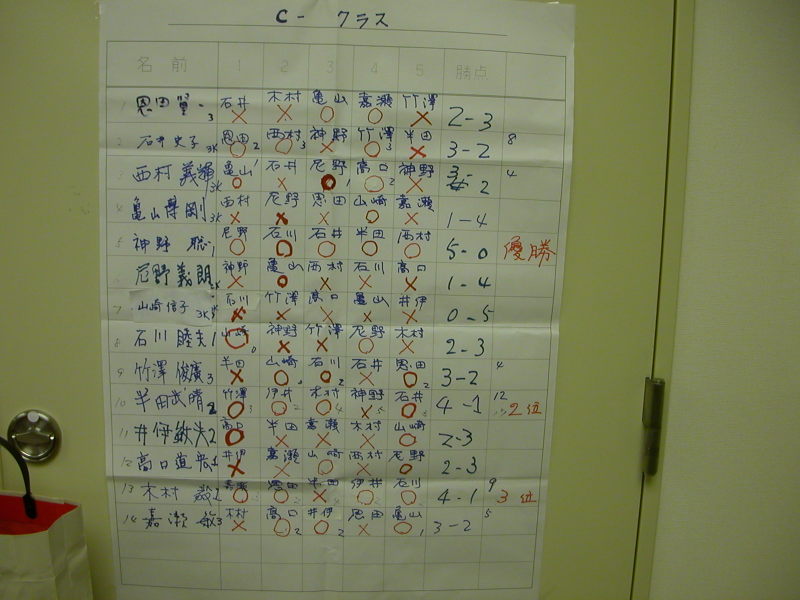 C- クラス
名前 1 2 3 4 5 勝点
1 恩田賢一 3 石井 木村 亀山 嘉瀬 竹澤 2-3
2 石井史子 3K 恩田 2 西村 3 神野 竹澤 3 半田 3-2 8
西村義輝 3K 亀山 1 石井 尼野 1 高口 2 神野 2 4
4 亀山 剛 3K 西村 尼野 恩田 山崎 嘉瀬 1-4
5 神野 聡 1 尼野 石川 石井 半田 西村 5-0 優勝
尼野義朗 神野 亀山 西村 石川 高口 1-4
7 山崎信子 3K 石川 竹澤 高口 亀山 井伊 0-5
8 石川睦夫 1 山崎 0 神野 竹澤 尼野 木村 2-3
9 竹澤俊廣 3 半田 山崎 0 石川 2 石井 恩田 2 3-2 4
10 半田 晴 2 竹澤 伊井 木村 神野 石井 4-1 12 2位
11 井伊敏夫 2 高口 半田 嘉瀬 木村 山崎 2-3
12 高口道 井伊 嘉瀬 山崎 西村 尼野 2-3
13 木村 敏 2 嘉瀬 恩田 半田 伊井 石川 4-1 9 3位
14 嘉瀬 敏 3 木村 高口 2 井伊 2 恩田 亀山 1 3-2 5